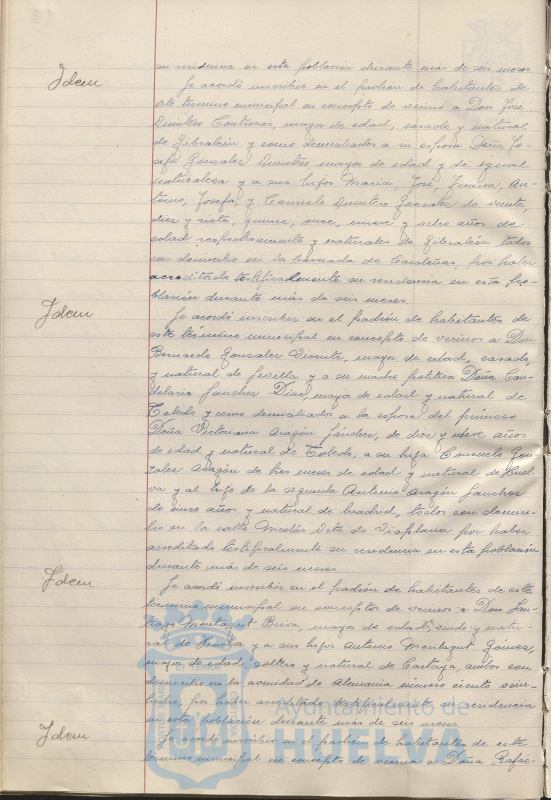 su residencia en esta población durante más de seis meses
Idem
Se acordó inscribir en el padron de habitantes de
este termino municipal en concepto de vecino a Don José
Quintero Contreras, mayor de edad, casado y natural
de Gibraleón y como domiciliados a su esposa Doña Jo-
sefa Gonzalez Quintero mayor de edad y de igual
naturaleza y a sus hijos Maria, José, Juana, An-
tonio, Josefa, y Consuelo Quintero Gonzalez de veinte,
diez y siete, quince, once, nueve y ocho años de
edad respectivamente y naturales de Gibraleón todos
con domicilio en la Barriada de Cardeñas, por haber
acreditado testificalmente su residencia en esta po-
blación durante más de seis meses.
Idem
Se acordó inscribir en el padrón de habitantes de
este término municipal en concepto de vecinos a Don
Bernardo Gonzalez Vicente, mayor de edad, casado,
y natural de Sevilla y a su madre politica Doña Can-
delaria Sanchez Diaz, mayor de edad y natural de
Toledo y como domiciliados a la esposa del primero
Doña Victoriana Aragón Sánchez, de diez y nueve años
de edad y natural de Toledo, a su hija Consuelo Gon-
zalez Aragón de tres meses de edad y natural de Huel-
va y al hijo de la segunda Antonio Aragón Sanchez
de once años y natural de Madrid, todos con domici-
lio en la calle Nicolás Orta de Visplana por haber
acreditado testificalmente su residencia en esta población
durante más de seis meses.
Idem
Se acordó inscribir en el padrón de habitantes de este
termino municipal en conceptos de vecinos a Don San-
tiago Montagut Briva, mayor de edad, viudo y natu-
ral de Huelva y a sus hijos Antonio Montagut Gómez,
mayor de edad, soltero y natural de Cartaya, ambos con
domicilio en la avenida de Alemania número ciento vein-
tiocho, por haber acreditado testificalmente su residencia
en esta población durante más de seis meses.
Idem
Se acordó inscribir en el padron de habitantes de este
termino municipal en concepto de vecina a Doña Rafae-
Ayuntamiento de
HUELVA